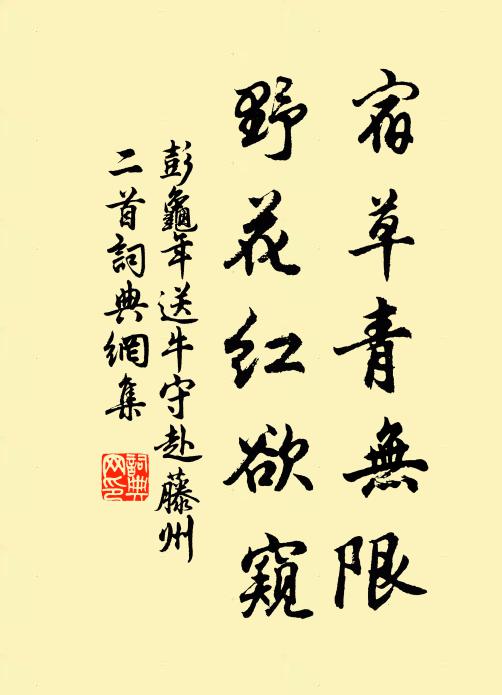 宿草青無限
野花红欲窺
彭龜年送牛守赴藤州
二首詞典網集
詞典网印